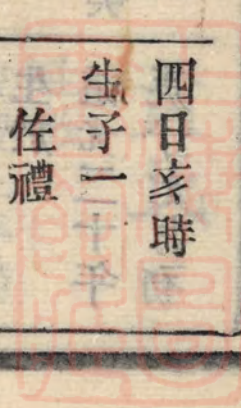 四日亥時
生子一
佐禮